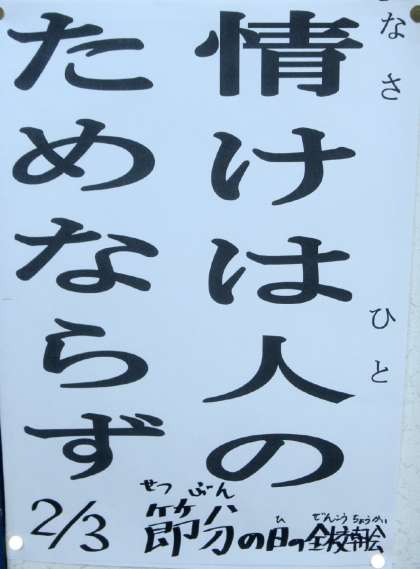 情けは人の
なさ
ひと
ためならず
せつぶん
節分の日の全校朝会
ひ
ぜんこうちょうかい
2/3